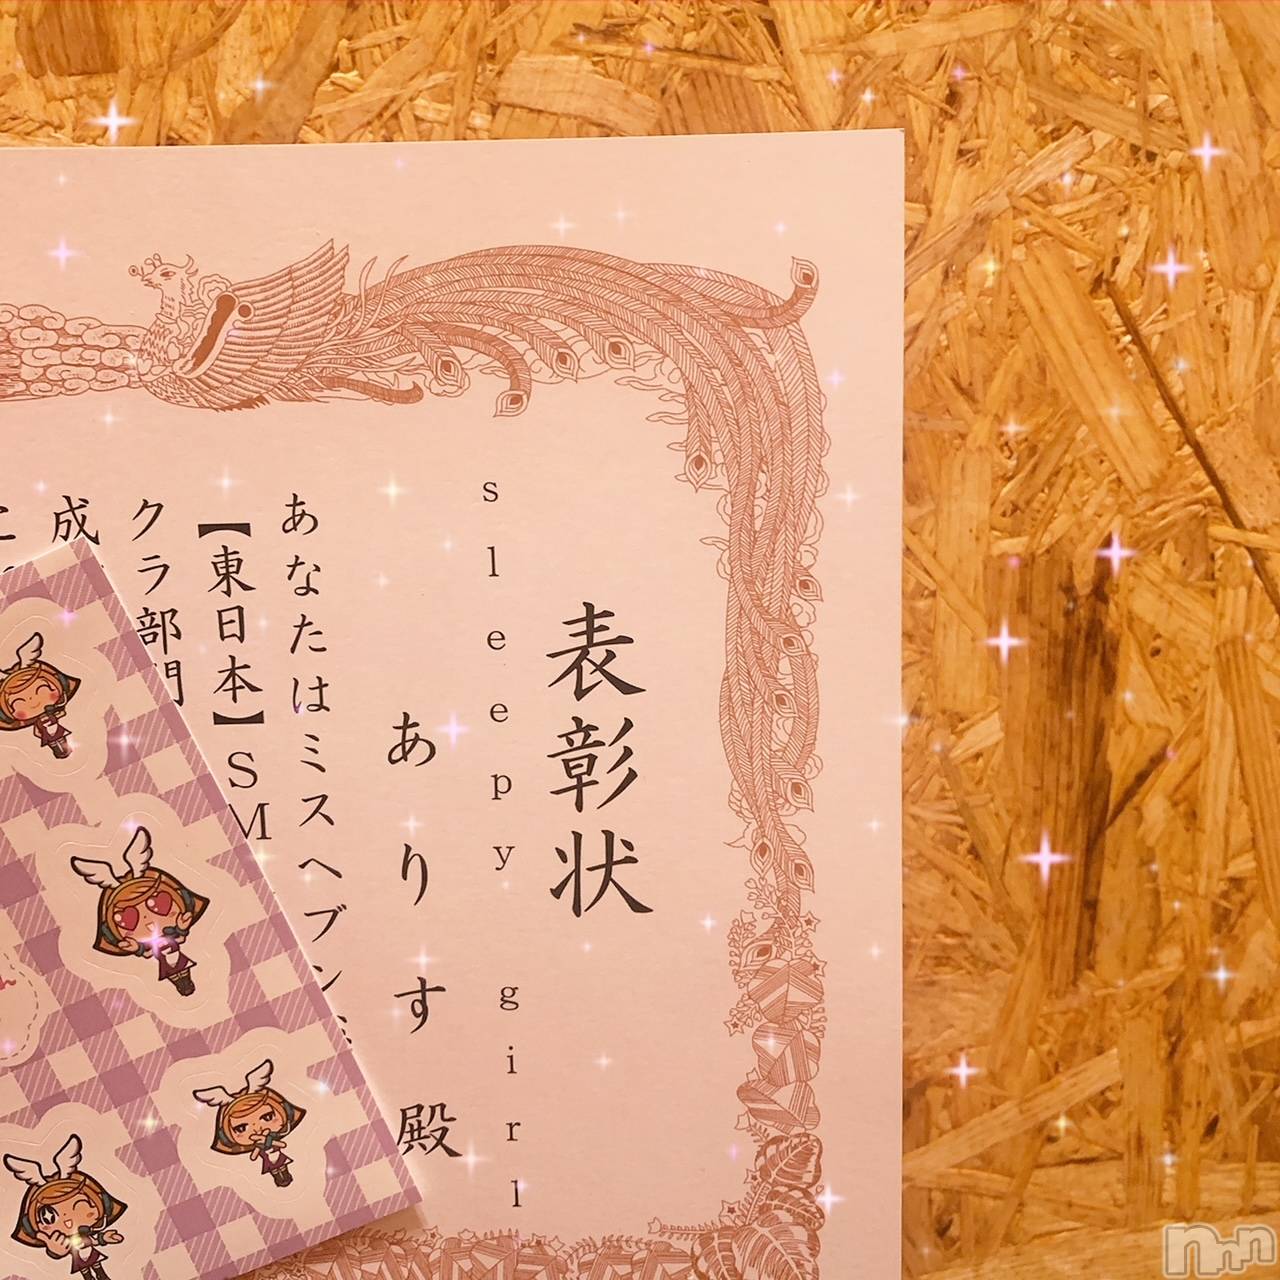 表彰状
sleepy girl
ありす 殿
あなたはミスヘブン
【東日本】SM
クラ部門
成
nnn